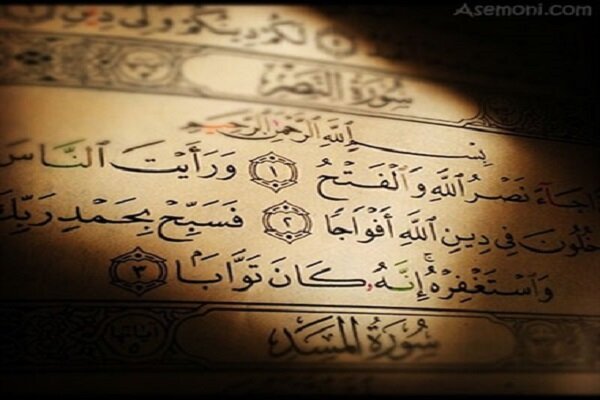 Asemoni.com
لَكُمْ دِينُكُمْ وَلِيَ دِينِ
سُورَةُ النَّصْرِ
بِسْمِ اللَّهِ الرَّحْمَٰنِ الرَّحِيمِ
جَآءَ نَصْرُ اللَّهِ وَالْفَتْحُ ١ وَرَأَيْتَ النَّاسَ
خُلُونَ فِي دِينِ اللَّهِ أَفْوَاجًا ٢ فَسَبِّحْ بِحَمْدِ رَبِّكَ
وَاسْتَغْفِرْهُ ۚ إِنَّهُ كَانَ تَوَّابًا ٣
سُورَةُ الْمَسَدِ آياتها ٥